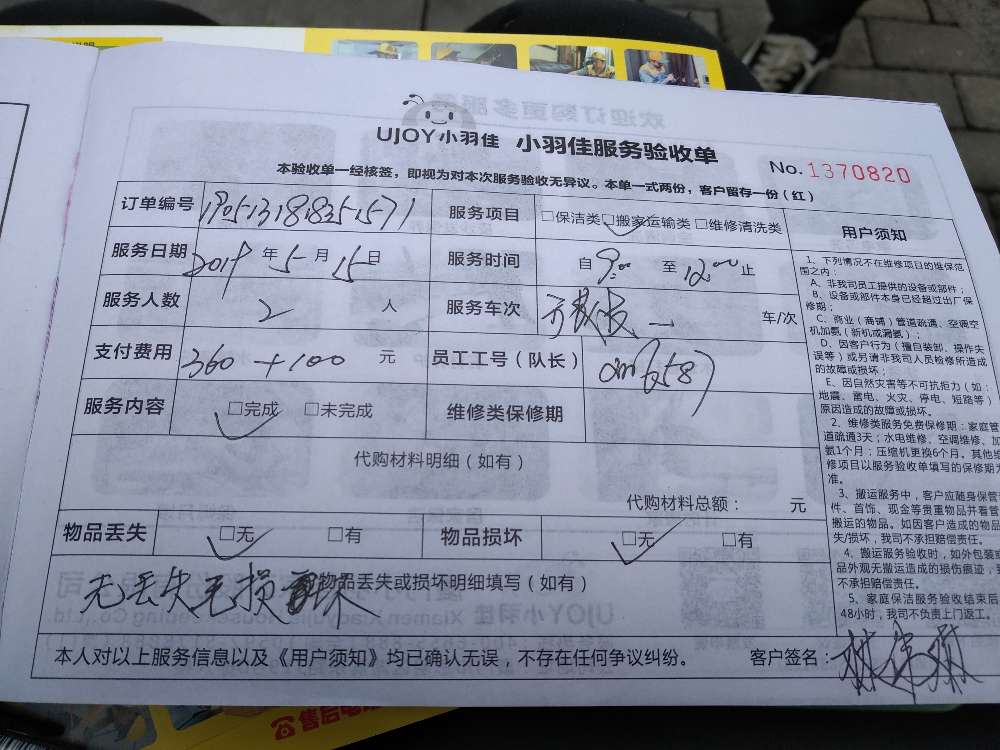 UJOY小羽佳 小羽佳服务验收单
No. 1370820
本验收单一经核签，即视为对本次服务验收无异议。本单一式两份，客户留存一份（红）
订单编号 19051318183515171 服务项目 □保洁类 □搬家运输类 □维修清洗类
服务日期 2019 年 5 月 15 日 服务时间 自 9:00 至 12:00 止
服务人数 2 人 服务车次 车/次
支付费用 360 + 100 元 员工工号（队长）
服务内容 □完成 □未完成 维修类保修期
代购材料明细（如有）
代购材料总额： 元
物品丢失 □无 □有 物品损坏 □无 □有
物品丢失或损坏明细填写（如有）
无丢失无损坏
本人对以上服务信息以及《用户须知》均已确认无误，不存在任何争议纠纷。 客户签名：
用户须知
1、下列情况不在维修项目的维保范
围之内：
A、非我司员工提供的设备或部件；
B、设备或部件本身已经超过出厂保
修期；
C、商业（商铺）管道疏通、空调空
机加氨（新机或漏氨）；
D、因客户行为（擅自装卸、操作失
误等）或另请非我司人员检修所造成
的故障或损坏；
E、因自然灾害等不可抗拒力（如：
地震、雷电、火灾、停电、短路等）
原因造成的故障或损坏。
2、维修类服务免费保修期：家庭管
道疏通3天；水电维修、空调维修、加
氨1个月；压缩机更换6个月。其他维
修项目以服务验收单填写的保修期为
准。
3、搬运服务中，客户应随身保管
件、首饰、现金等贵重物品并看管
搬运的物品。如因客户造成的物品
失/损坏，我司不承担赔偿责任。
4、搬运服务验收时，如外包装或
品外观无搬运造成的损伤痕迹，
不承担赔偿责任。
5、家庭保洁服务验收结束后
48小时，我司不负责上门返工。